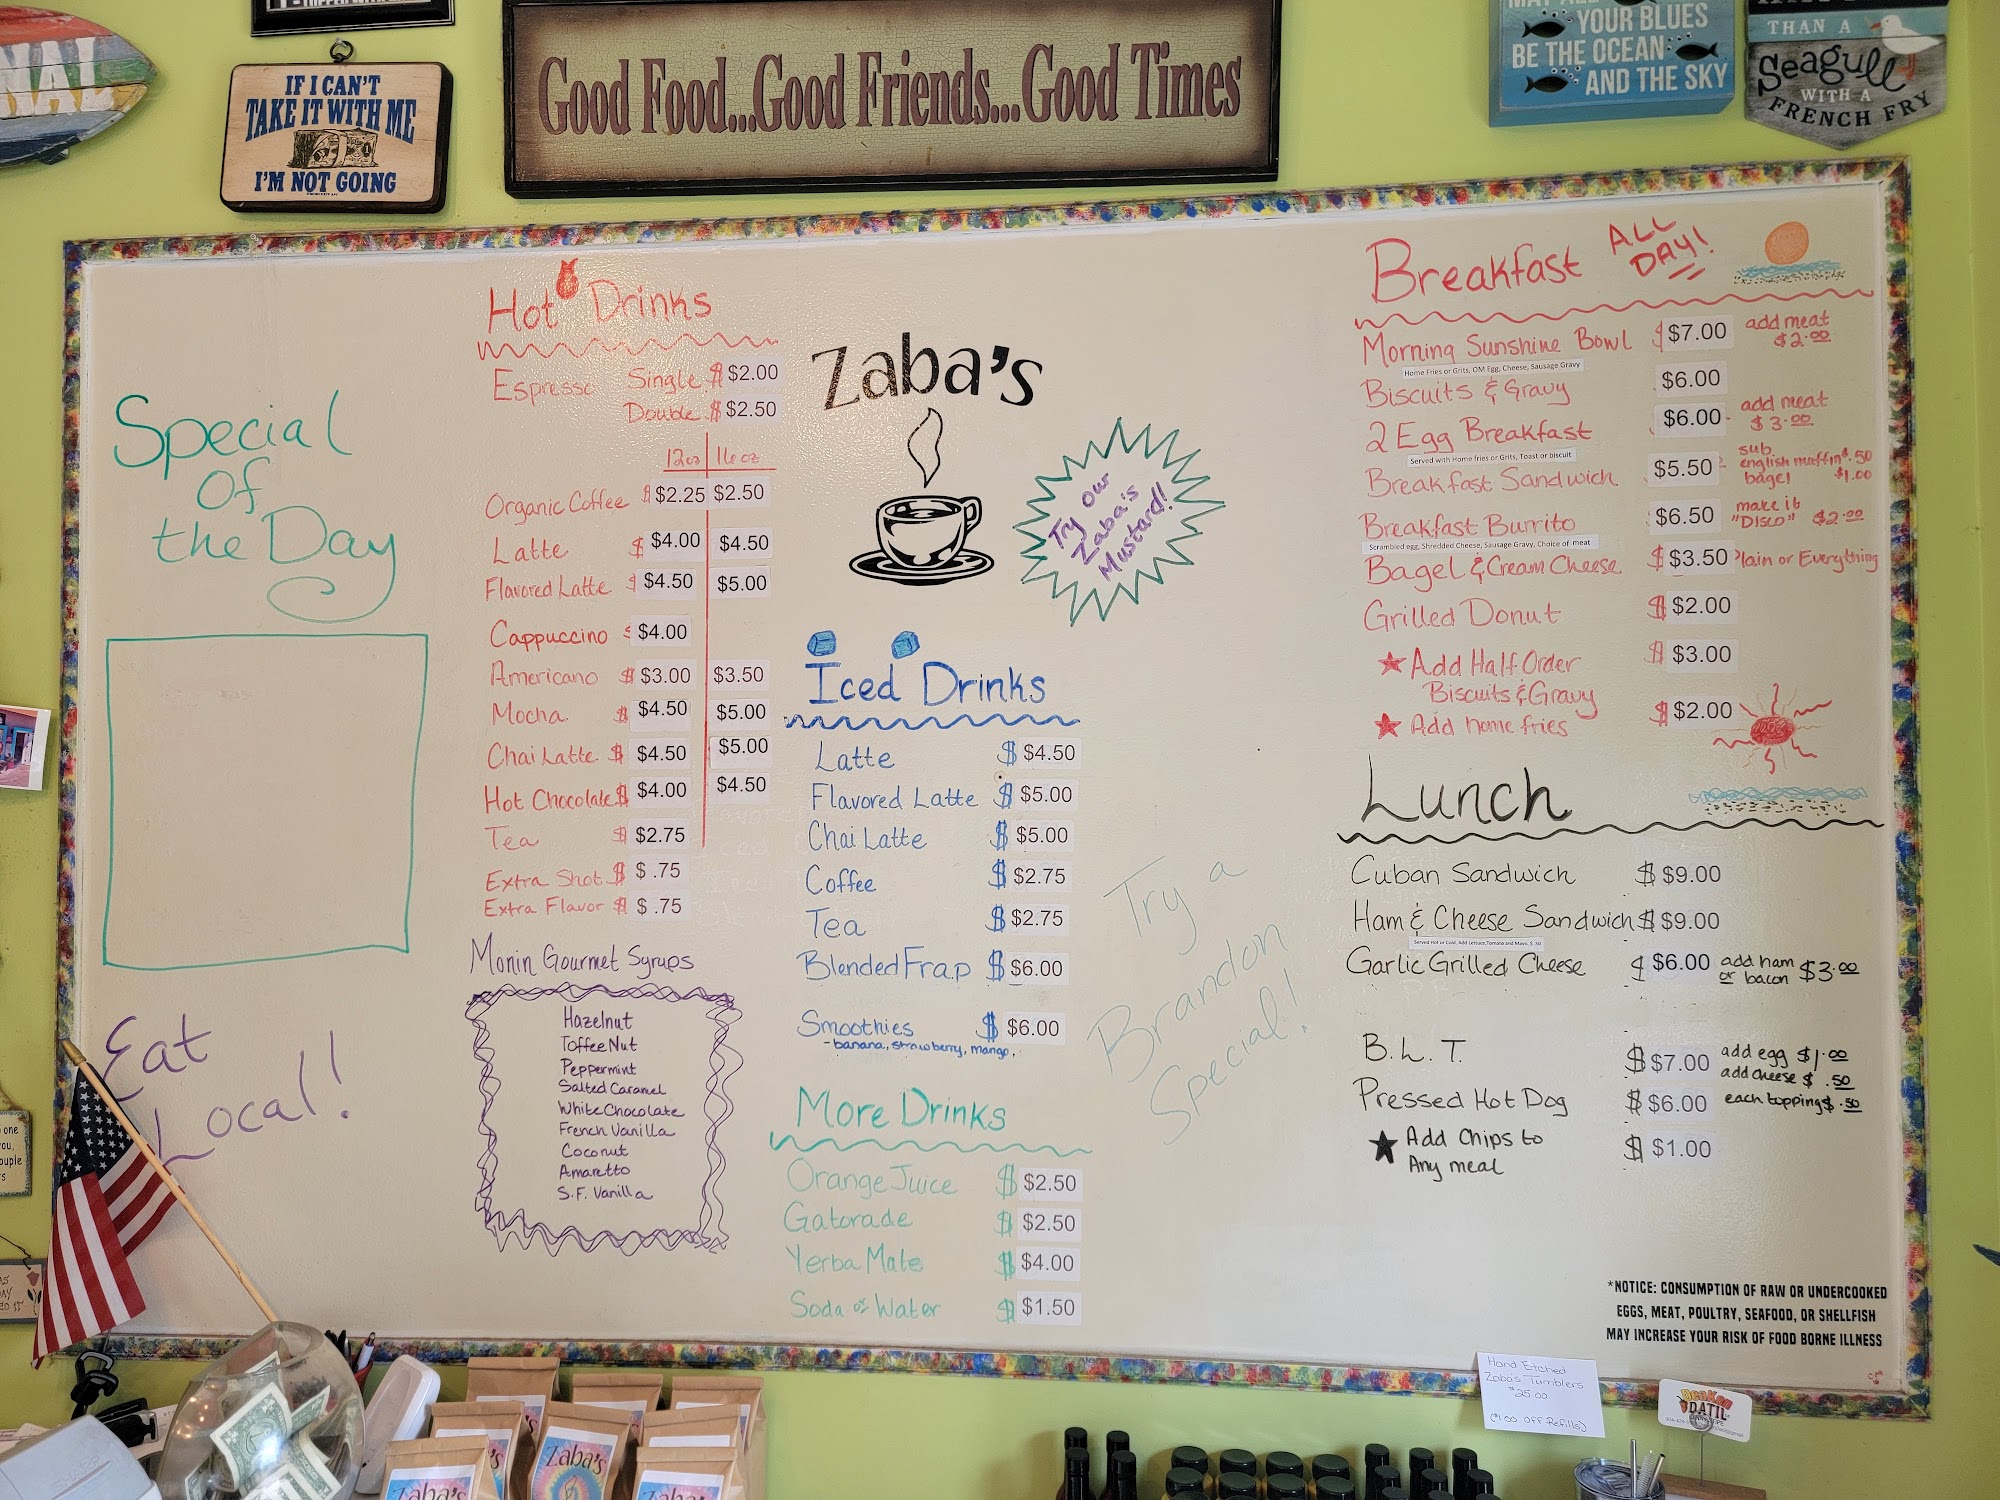 NAL
IF I CAN'T
TAKE IT WITH ME
I'M NOT GOING
Good Food...Good Friends...Good Times
MAY ALL
YOUR BLUES
BE THE OCEAN
AND THE SKY
THAN A
Seagull
WITH A
FRENCH FRY
Special
Of
the Day
Eat
Local!
Hot Drinks
Espresso Single $ $2.00
Double $ $2.50
12oz 16oz
Organic Coffee $ $2.25 $2.50
Latte $ $4.00 $4.50
Flavored Latte $ $4.50 $5.00
Cappuccino $ $4.00
Americano $ $3.00 $3.50
Mocha $ $4.50 $5.00
Chai Latte $ $4.50 $5.00
Hot Chocolate $ $4.00 $4.50
Tea $ $2.75
Extra Shot $ $ .75
Extra Flavor $ $ .75
Monin Gourmet Syrups
Hazelnut
Toffee Nut
Peppermint
Salted Caramel
White Chocolate
French Vanilla
Coconut
Amaretto
S.F. Vanilla
Zaba's
Try our
Zaba's
Mustard!!
Iced Drinks
Latte $ $4.50
Flavored Latte $ $5.00
Chai Latte $ $5.00
Coffee $ $2.75
Tea $ $2.75
Blended Frap $ $6.00
Smoothies $ $6.00
- banana, strawberry, mango,
More Drinks
Orange Juice $ $2.50
Gatorade $ $2.50
Yerba Mate $ $4.00
Soda or Water $ $1.50
Try a
Brandon
Special!
Breakfast ALL DAY!
Morning Sunshine Bowl $ $7.00 add meat $2.00
Home Fries or Grits, OM Egg, Cheese, Sausage Gravy
Biscuits & Gravy $6.00
2 Egg Breakfast $6.00 add meat $3.00
Served with Home fries or Grits, Toast or biscuit
Breakfast Sandwich $5.50 sub english muffin $.50 bagel $1.00
Breakfast Burrito $6.50 make it "DISCO" $2.00
Scrambled egg, Shredded Cheese, Sausage Gravy, Choice of meat
Bagel & Cream Cheese $ $3.50 Plain or Everything
Grilled Donut $ $2.00
Add Half Order $ $3.00
Biscuits & Gravy
Add home fries $ $2.00
Lunch
Cuban Sandwich $ $9.00
Ham & Cheese Sandwich $ $9.00
Served Hot or Cold, Add Lettuce, Tomato and Mayo, $ .50
Garlic Grilled Cheese $ $6.00 add ham or bacon $3.00
B.L.T. $ $7.00 add egg $1.00
add cheese $ .50
Pressed Hot Dog $ $6.00 each topping $ .50
Add Chips to $ $1.00
Any meal
*NOTICE: CONSUMPTION OF RAW OR UNDERCOOKED
EGGS, MEAT, POULTRY, SEAFOOD, OR SHELLFISH
MAY INCREASE YOUR RISK OF FOOD BORNE ILLNESS
Hand Etched
Zaba's Tumblers
$25.00
($1.00 OFF Refills)
DATIL
Zaba's
Zaba's